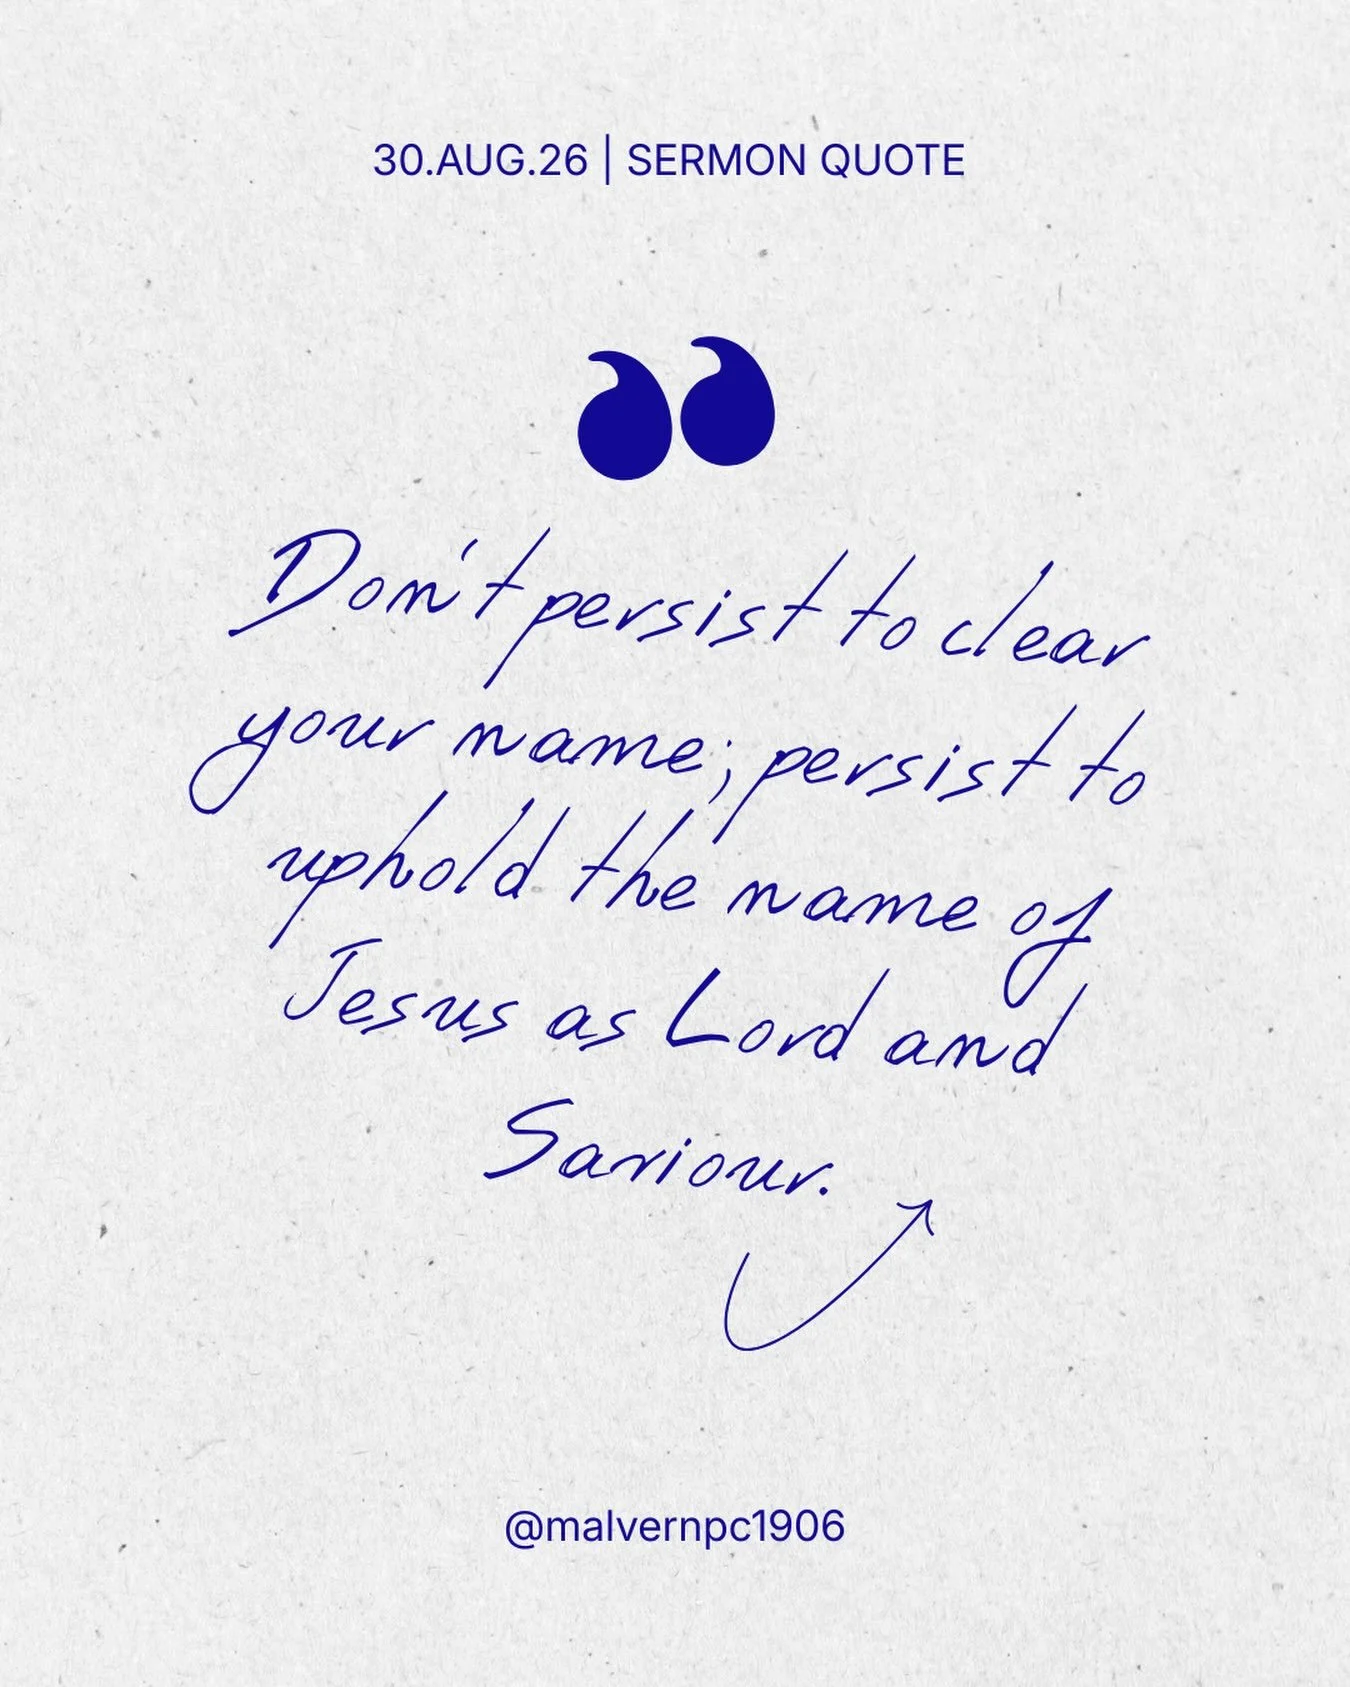 30.AUG.26 | SERMON QUOTE
Don't persist to clear
your name; persist to
uphold the name of
Jesus as Lord and
Saviour.
@malvernpc1906